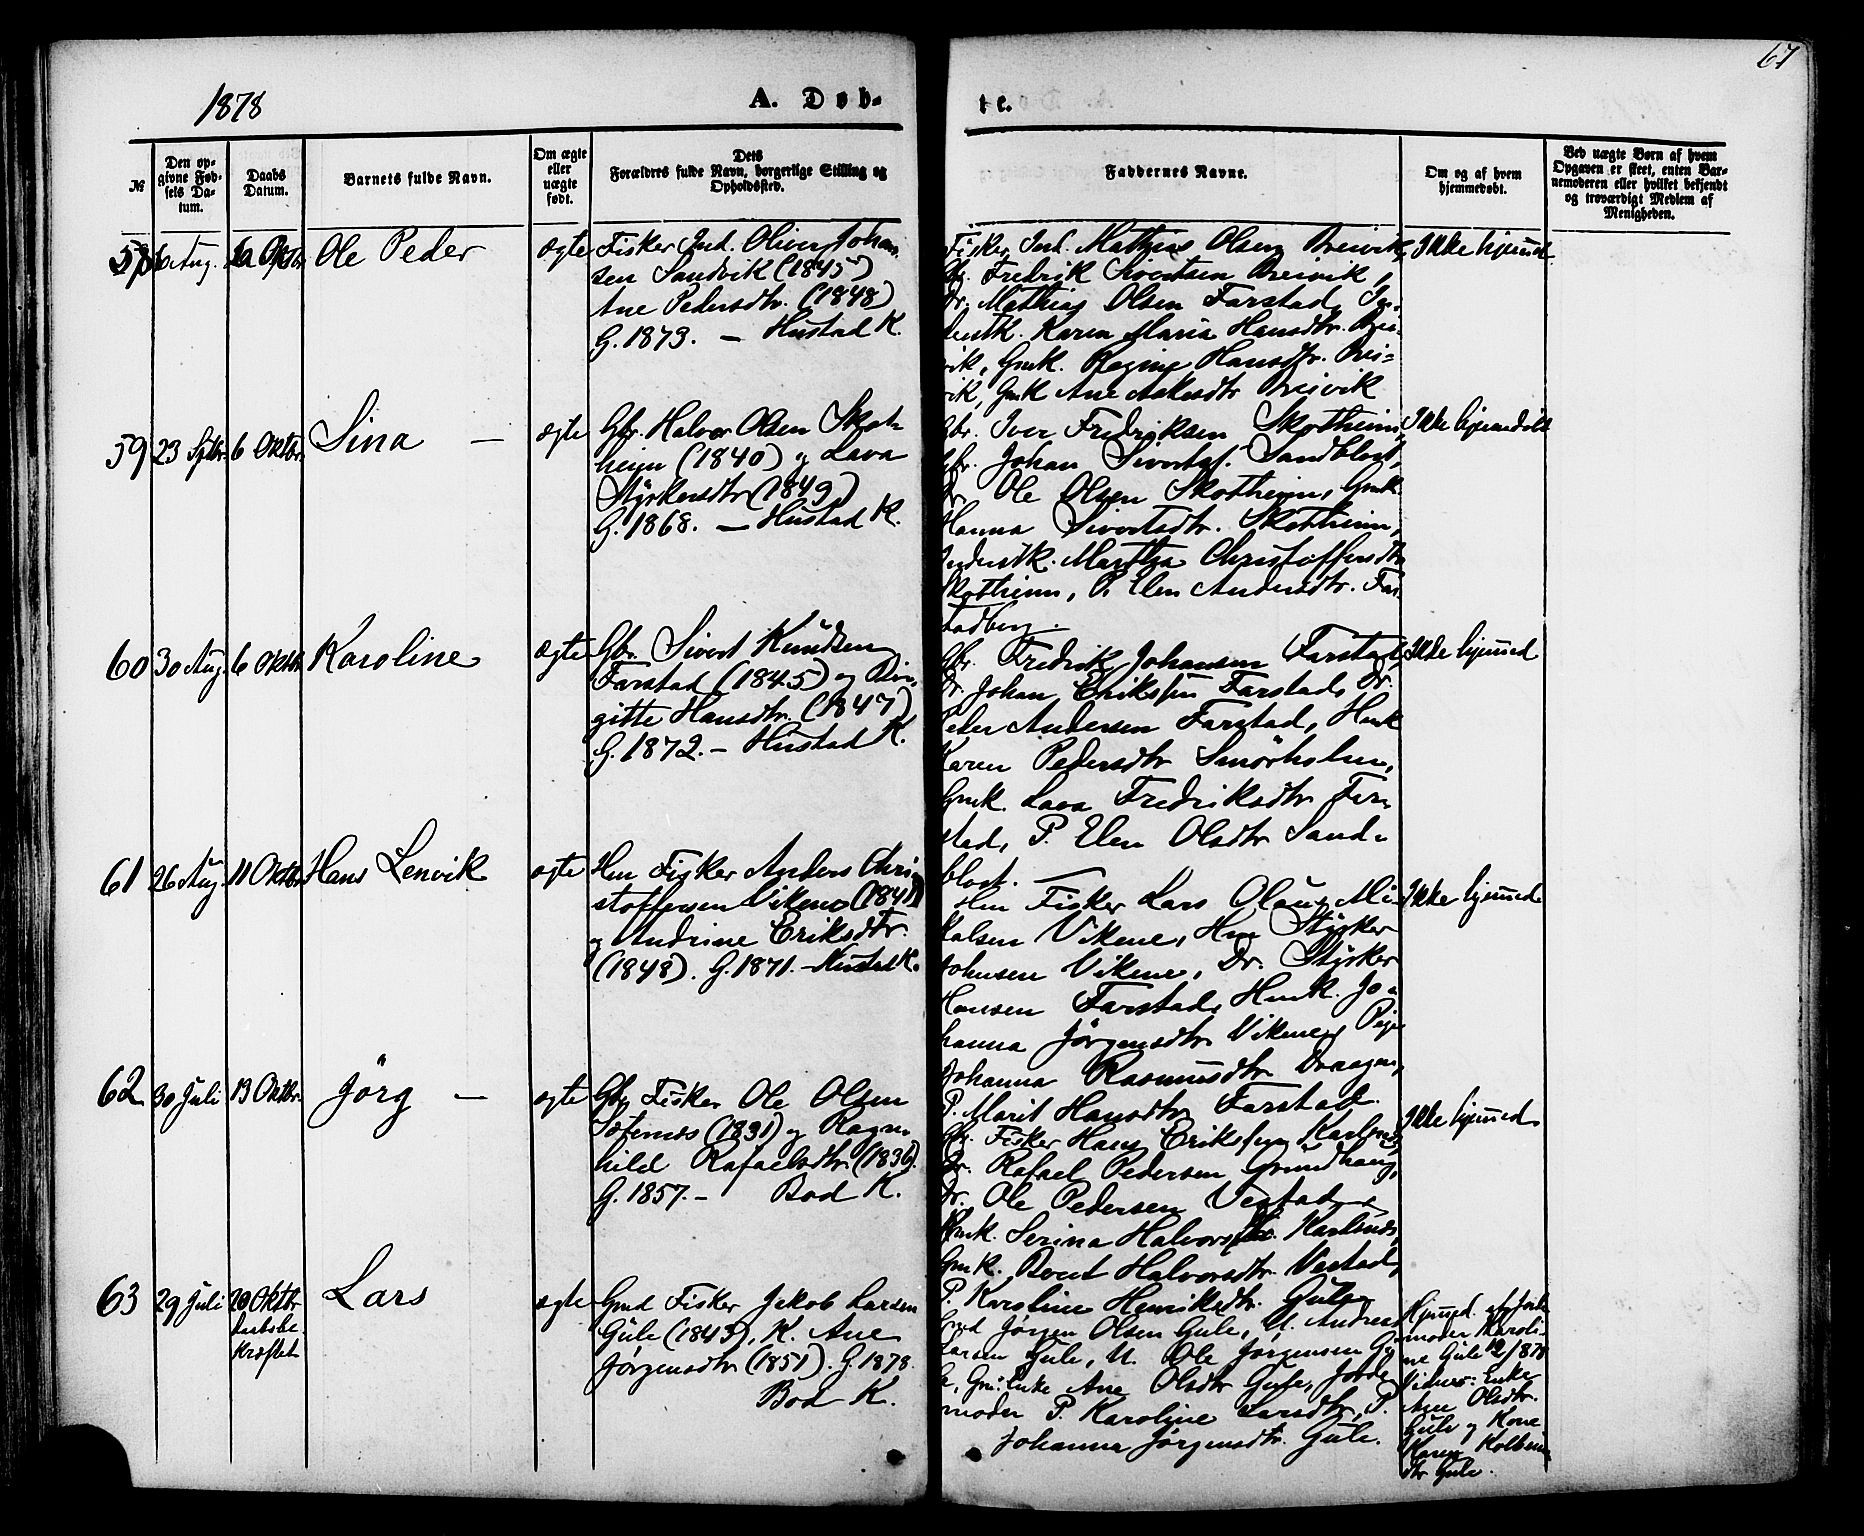 67
1878
A. Døb-
te.
№
Den op-
givne Fød-
sels Da-
tum.
Daabs
Datum.
Barnets fulde Navn.
Om ægte
eller
uægte
født.
Dets
Forældres fulde Navn, borgerlige Stilling og
Opholdssted.
Faddernes Navne.
Om og af hvem
hjemmedøbt.
Ved uægte Børn af hvem
Opgaven er skeet, enten Bar-
nemoderen eller hvilket bekjendt
og troværdigt Medlem af
Menigheden.
58 6 Aug. 6 Oktbr Ole Peder ægte
Fisker Ind. Oliver Johan-
sen Sandvik (1845)
Ane Pedersdtr. (1848)
G. 1873. — Hustad K.
Fisker Ind. Mathias Olsen Breivik,
Gbr. Fredrik Sivertsen Breivik,
Dr. Mathias Olsen Farstad,
Karen Maria Hansdtr. Brei-
vik, Gmk. Regine Hansdtr. Brei-
vik, Gmk Ane Aslaksdtr Breivik
Ikke hjemmed.
59 23 Sptbr. 6 Oktbr. Sina — ægte
Gbr. Halvor Olsen Skot-
heim (1840) og Lava
Styrkersdtr (1849)
G. 1868. — Hustad K.
Gbr. Iver Fredriksen Skotheim,
Gbr. Johan Sivertsf. Sandblost,
Dr. Ole Olsen Skotheim, Gmk.
Hanna Sivertsdtr. Skotheim,
Inderstk. Martha Christoffersdtr
Skotheim, P. Elen Andersdtr. Far-
stadberg.
Ikke hjemmedøbt
60 30 Aug. 6 Oktbr Karoline ægte
Gbr. Sivert Knudsen
Farstad (1845) og Bir-
gitte Hansdtr. (1847)
G. 1872. — Hustad K.
Gbr. Fredrik Johansen Farstad,
Dr. Johan Eriksen Farstad, Dr.
Peder Andersen Farstad, Hmk
Karen Pedersdtr Smørholm,
Gmk. Lava Fredriksdtr Far-
stad, P. Elen Olsdtr Sand-
blost. —
Ikke hjemmed
61 26 Aug. 11 Oktbr Hans Lenvik ægte
Hm Fisker Anders Chri-
stoffersen Vikene (1841)
og Andrine Eriksdtr.
(1848). G. 1871. — Hustad K.
Hm Fisker Lars Olaus Mi-
kalsen Vikene, Hm Styrker
Johnsen Vikene, Dr. Styrker
Hansen Farstad, Hmk. Jo-
hanna Jørgensdtr Vikene, Pige
Johanna Rasmusdtr Draagen,
P. Marit Hansdtr Farstad.
Ikke hjemmed.
62 30 Juli 13 Oktbr. Jörg — ægte
Gbr Fisker Ole Olsen
(1831) og Ragn-
hild Rafaelsdtr (1836).
G. 1857. — Bod K.
Gbr. Fisker Hans Eriksen Karlsnes,
Dr. Rafael Pedersen Grundhaug,
Dr. Ole Pedersen Vestad,
Gmk. Serina Halvorsdtr. Karlsnes,
Gmk. Berit Halvorsdtr. Vestad,
P. Karoline Henriksdtr. Gule
Ikke hjemmed.
63 29 Juli 20 Oktbr
Daabsbe-
kræftet
Lars ægte
Gmd Fisker Jakob Larsen
Gule (1845), K. Ane
Jørgensdtr (1851). G. 1878.
Bod K.
Gmd Jørgen Olsen Gule, U. Andreas
Larsen Gule, U. Ole Jørgensen Gu-
le, Gm: Enke Ane Olsdtr Gule, Jorde-
moder P. Karoline Larsdtr, P.
Johanna Jørgensdtr. Gule.
Hjemmed. af Jorde-
moder Karoli-
ne Gule
Vidner: Enke
Ane Olsdtr.
Gule og Kone
Karen Kolbeins-
dtr Gule.